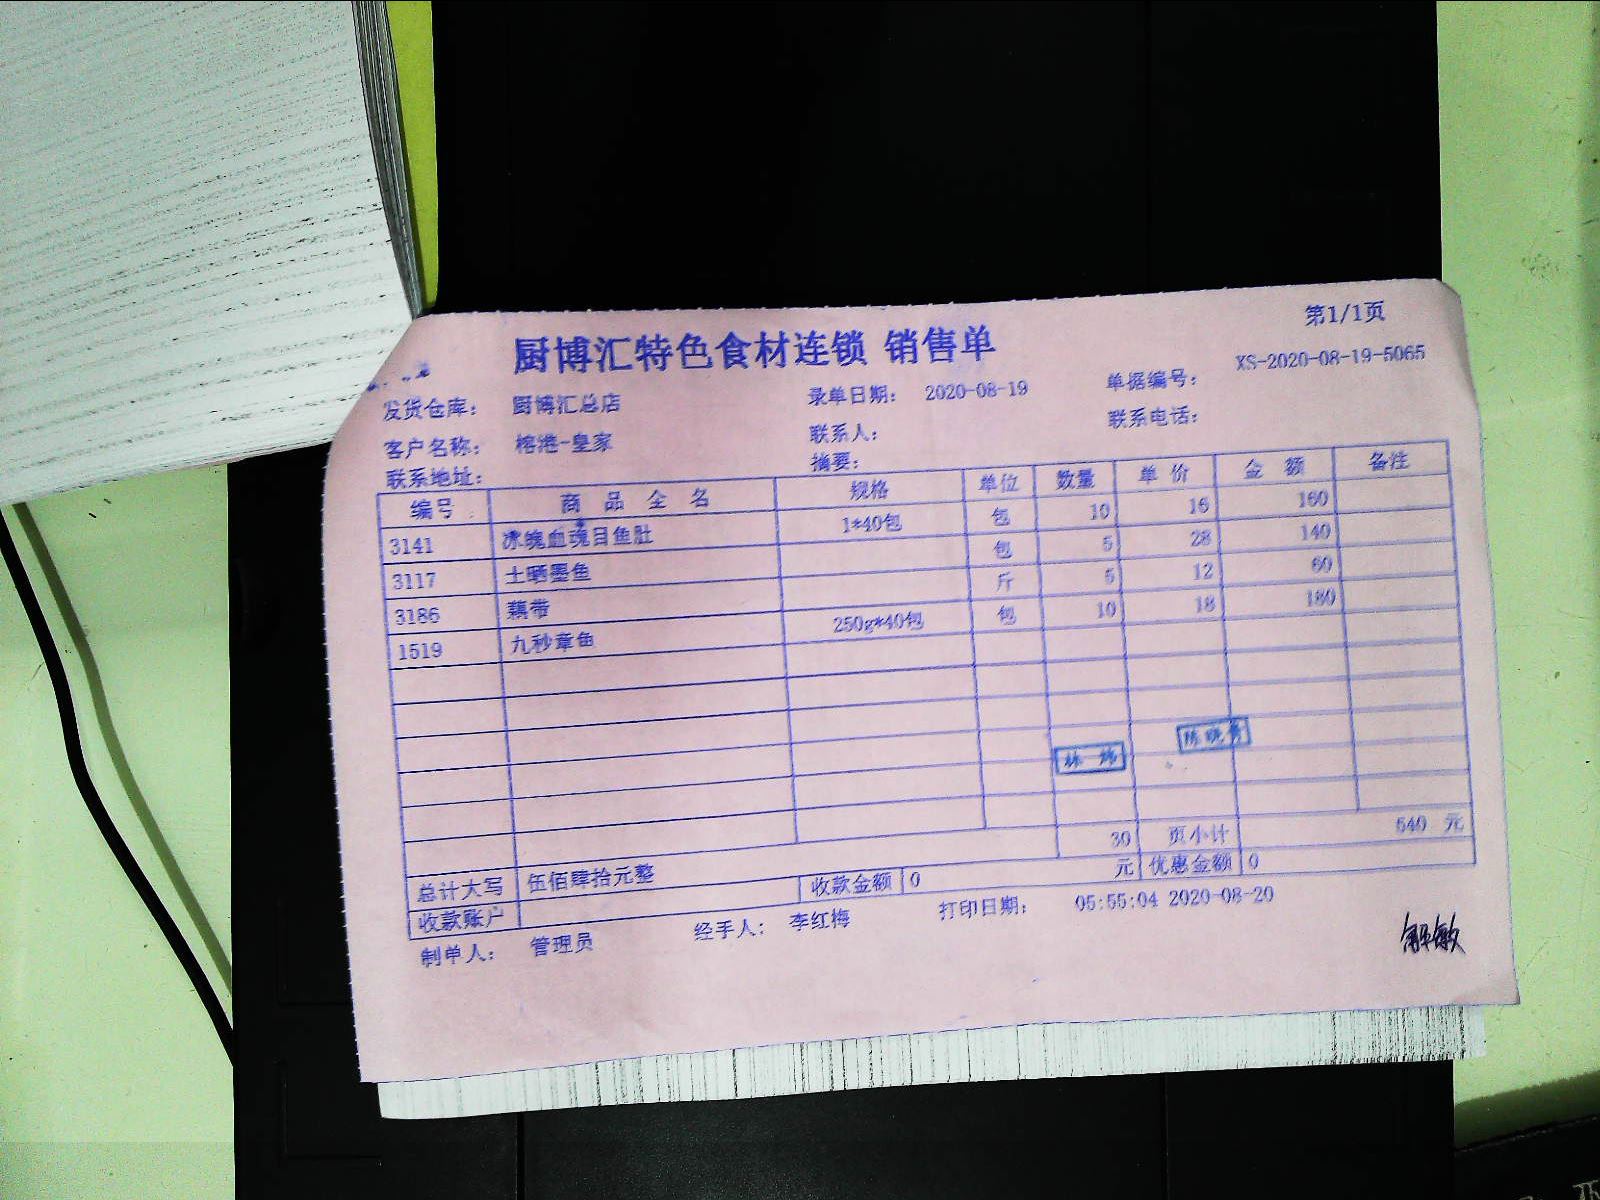 第1/1页
厨博汇特色食材连锁 销售单
发货仓库： 厨博汇总店 录单日期： 2020-08-19 单据编号： XS-2020-08-19-5065
客户名称： 榕港-皇家 联系人： 联系电话：
联系地址： 摘要：
编号 商品全名 规格 单位 数量 单价 金额 备注
3141 冰魄血魂目鱼肚 1*40包 包 10 16 160
3117 土晒墨鱼 包 5 28 140
3186 藕带 斤 5 12 60
1519 九秒章鱼 250g*40包 包 10 18 180
30 页小计 540 元
总计大写 伍佰肆拾元整 收款金额 0 元 优惠金额 0
收款账户
制单人： 管理员 经手人： 李红梅 打印日期： 05:55:04 2020-08-20